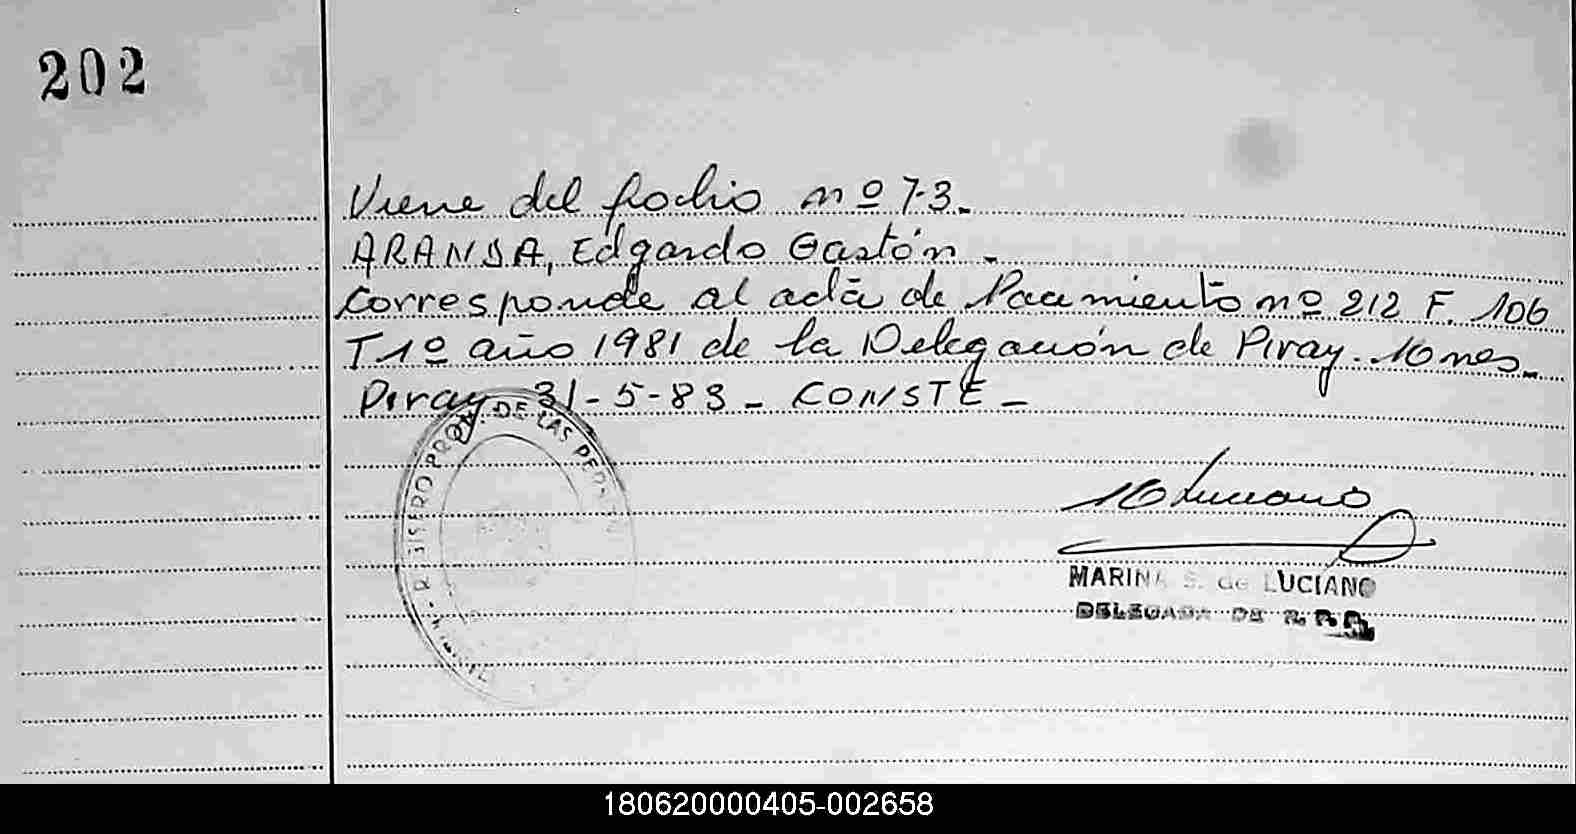 202
Viene del folio nº 73.
ARANDA, Edgardo Gastón.
Corresponde al acta de Nacimiento nº 212 F. 106
T 1º año 1981 de la Delegación de Piray. Mnes.
Piray 31-5-83 - CONSTE -
PROV. DE LAS PERSON
M Luciano
MARINA S. de LUCIANO
DELEGADA DE R. P. P.
180620000405-002658